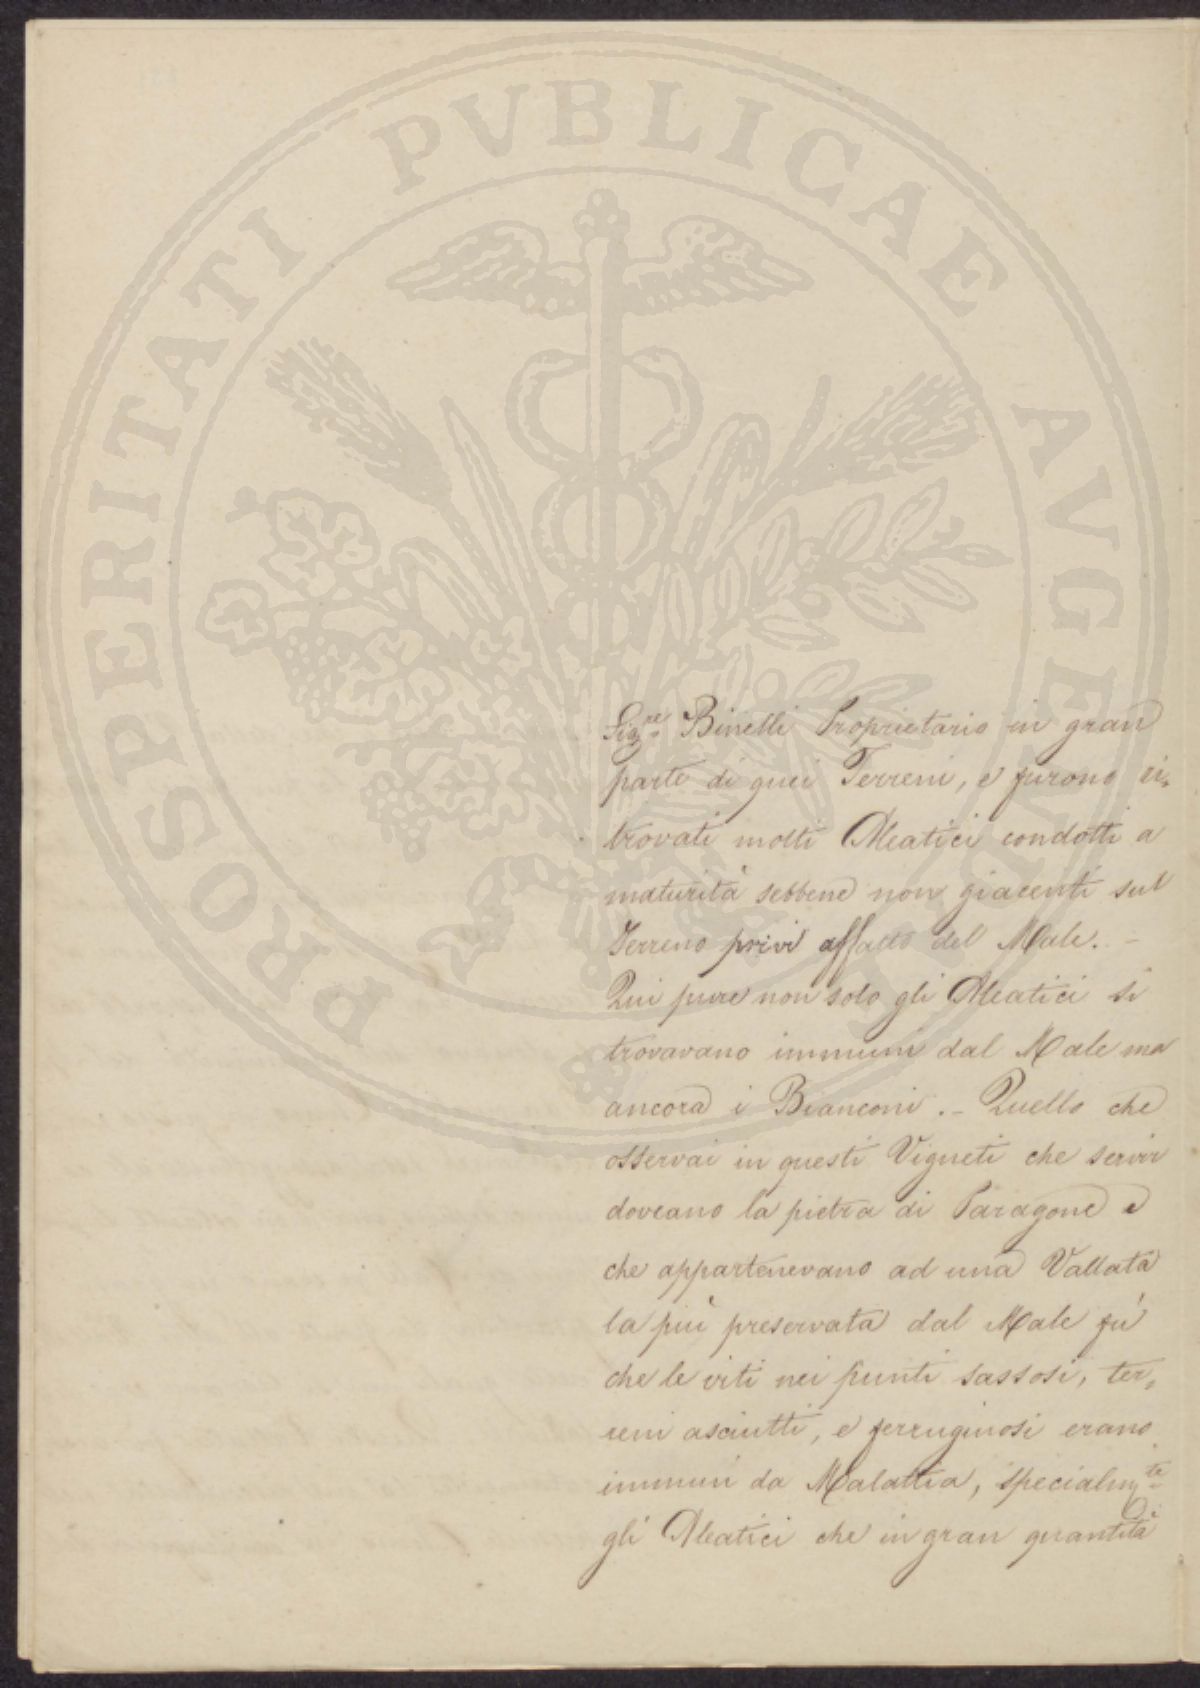 PROSPERITATI PVBLICAE AVGENDAE
Sig.re Binelli Proprietario in gran
parte di quei Terreni, e furono ri„
trovati molti Aleatici condotti a
maturità sebbene non giacenti sul
Terreno privi affatto del Male. –
Qui pure non solo gli Aleatici si
trovavano immuni dal Male ma
ancora i Bianconi. – Quello che
osservai in questi Vigneti che servir
doveano la pietra di Paragone e
che appartenevano ad una Vallata
la più preservata dal Male fù
che le viti nei punti sassosi, ter„
reni asciutti, e ferruginosi erano
immuni da Malattia, specialm.te
gli Aleatici che in gran quantità